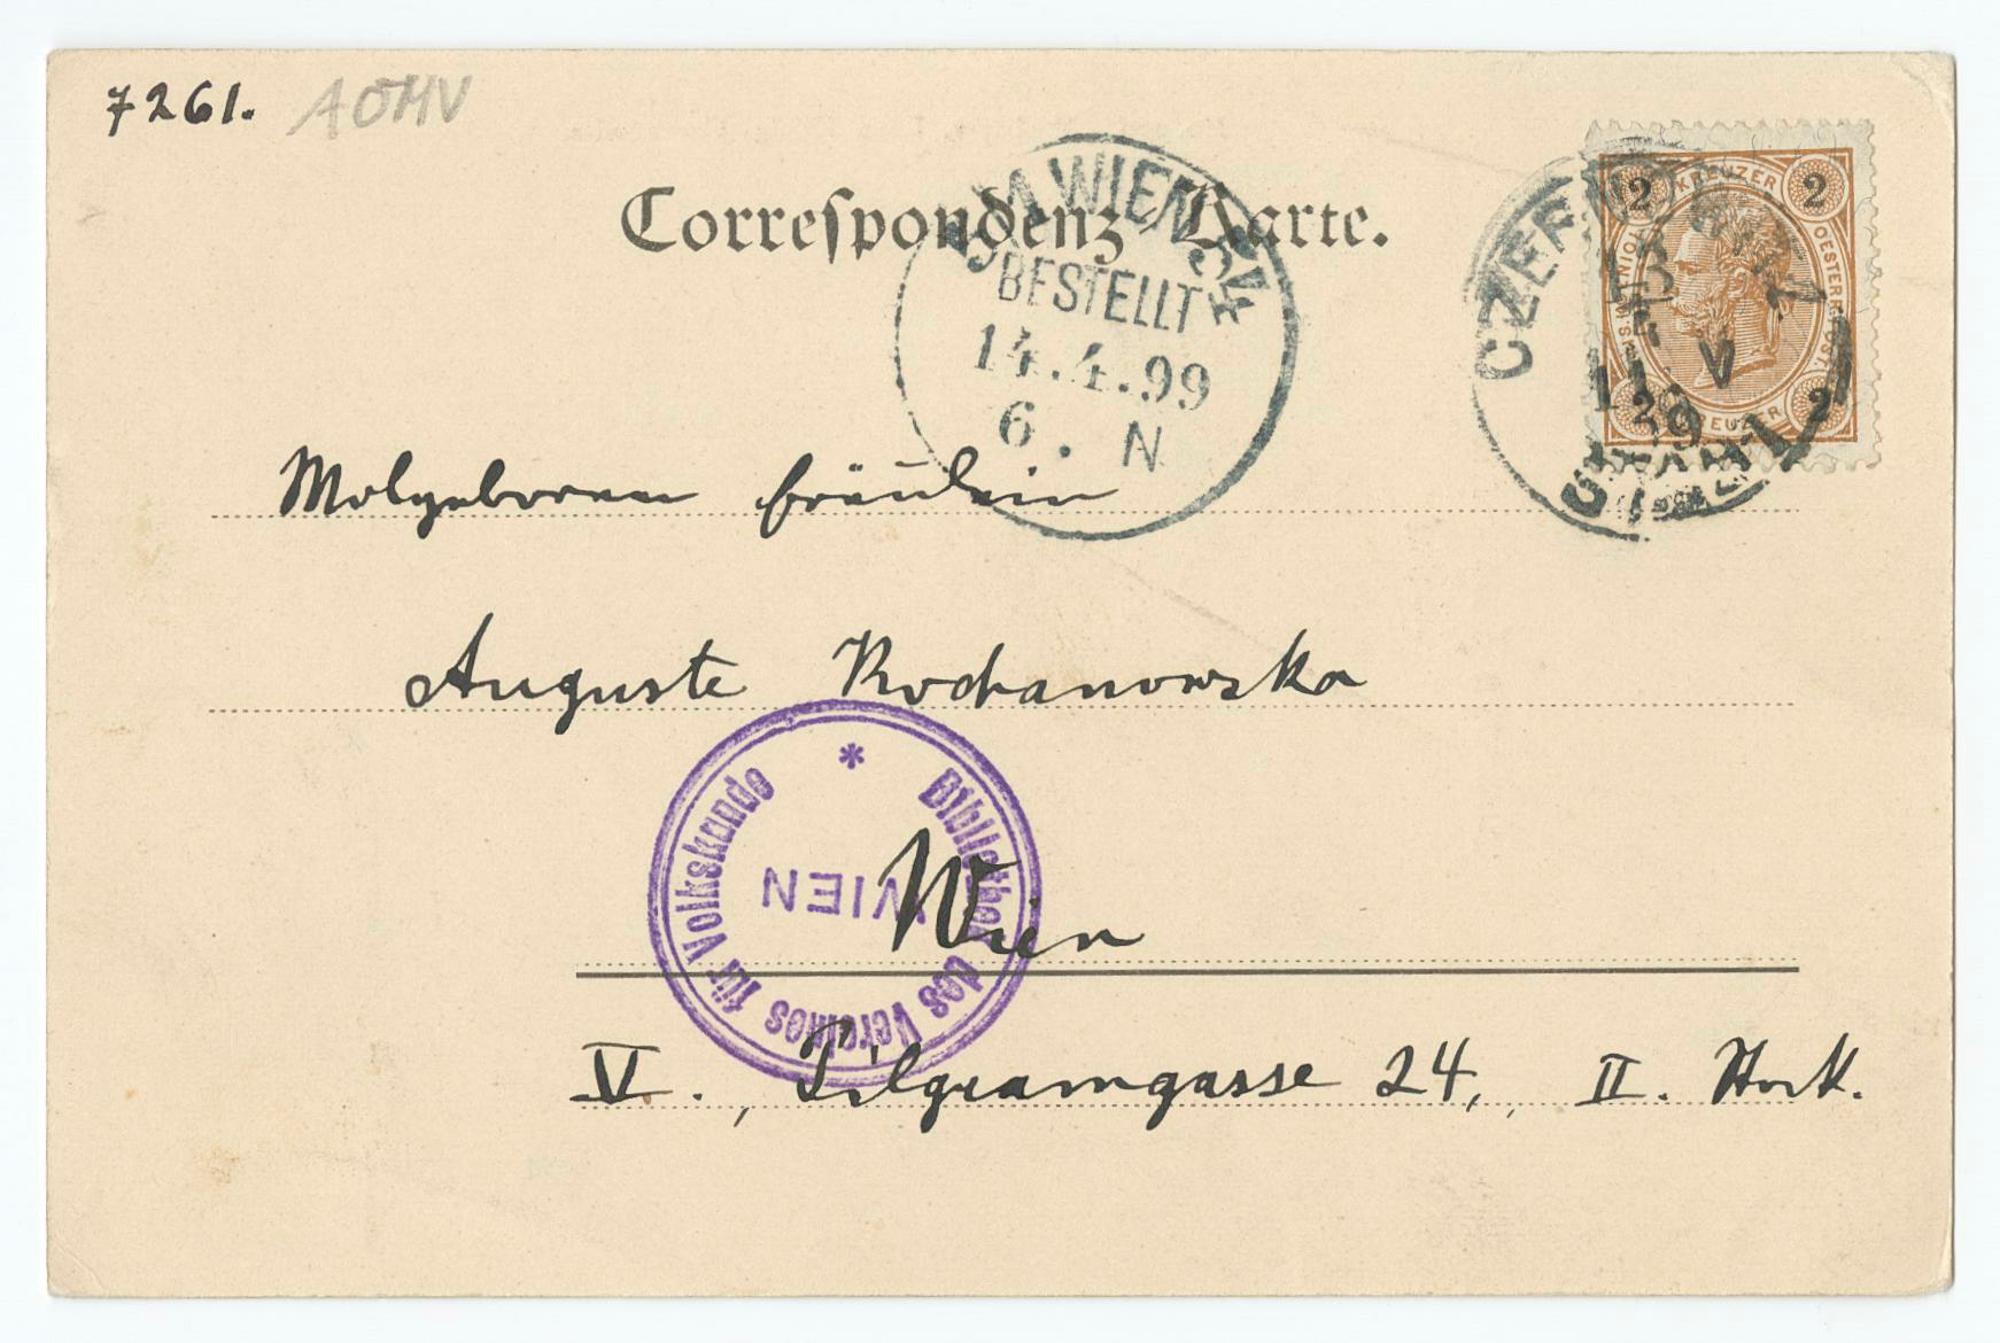 7261. AÖMV
Correspondenz-Karte.
WIEN 5/1
BESTELLT
14.4.99
6. N
CZERNOWITZ
2 KREUZER 2
Wolgeboren Fräulein
Auguste Kochanowska
Bibliothek des Vereines für Volkskunde
WIEN
Wien
V., Pilgramgasse 24, II. Stock.